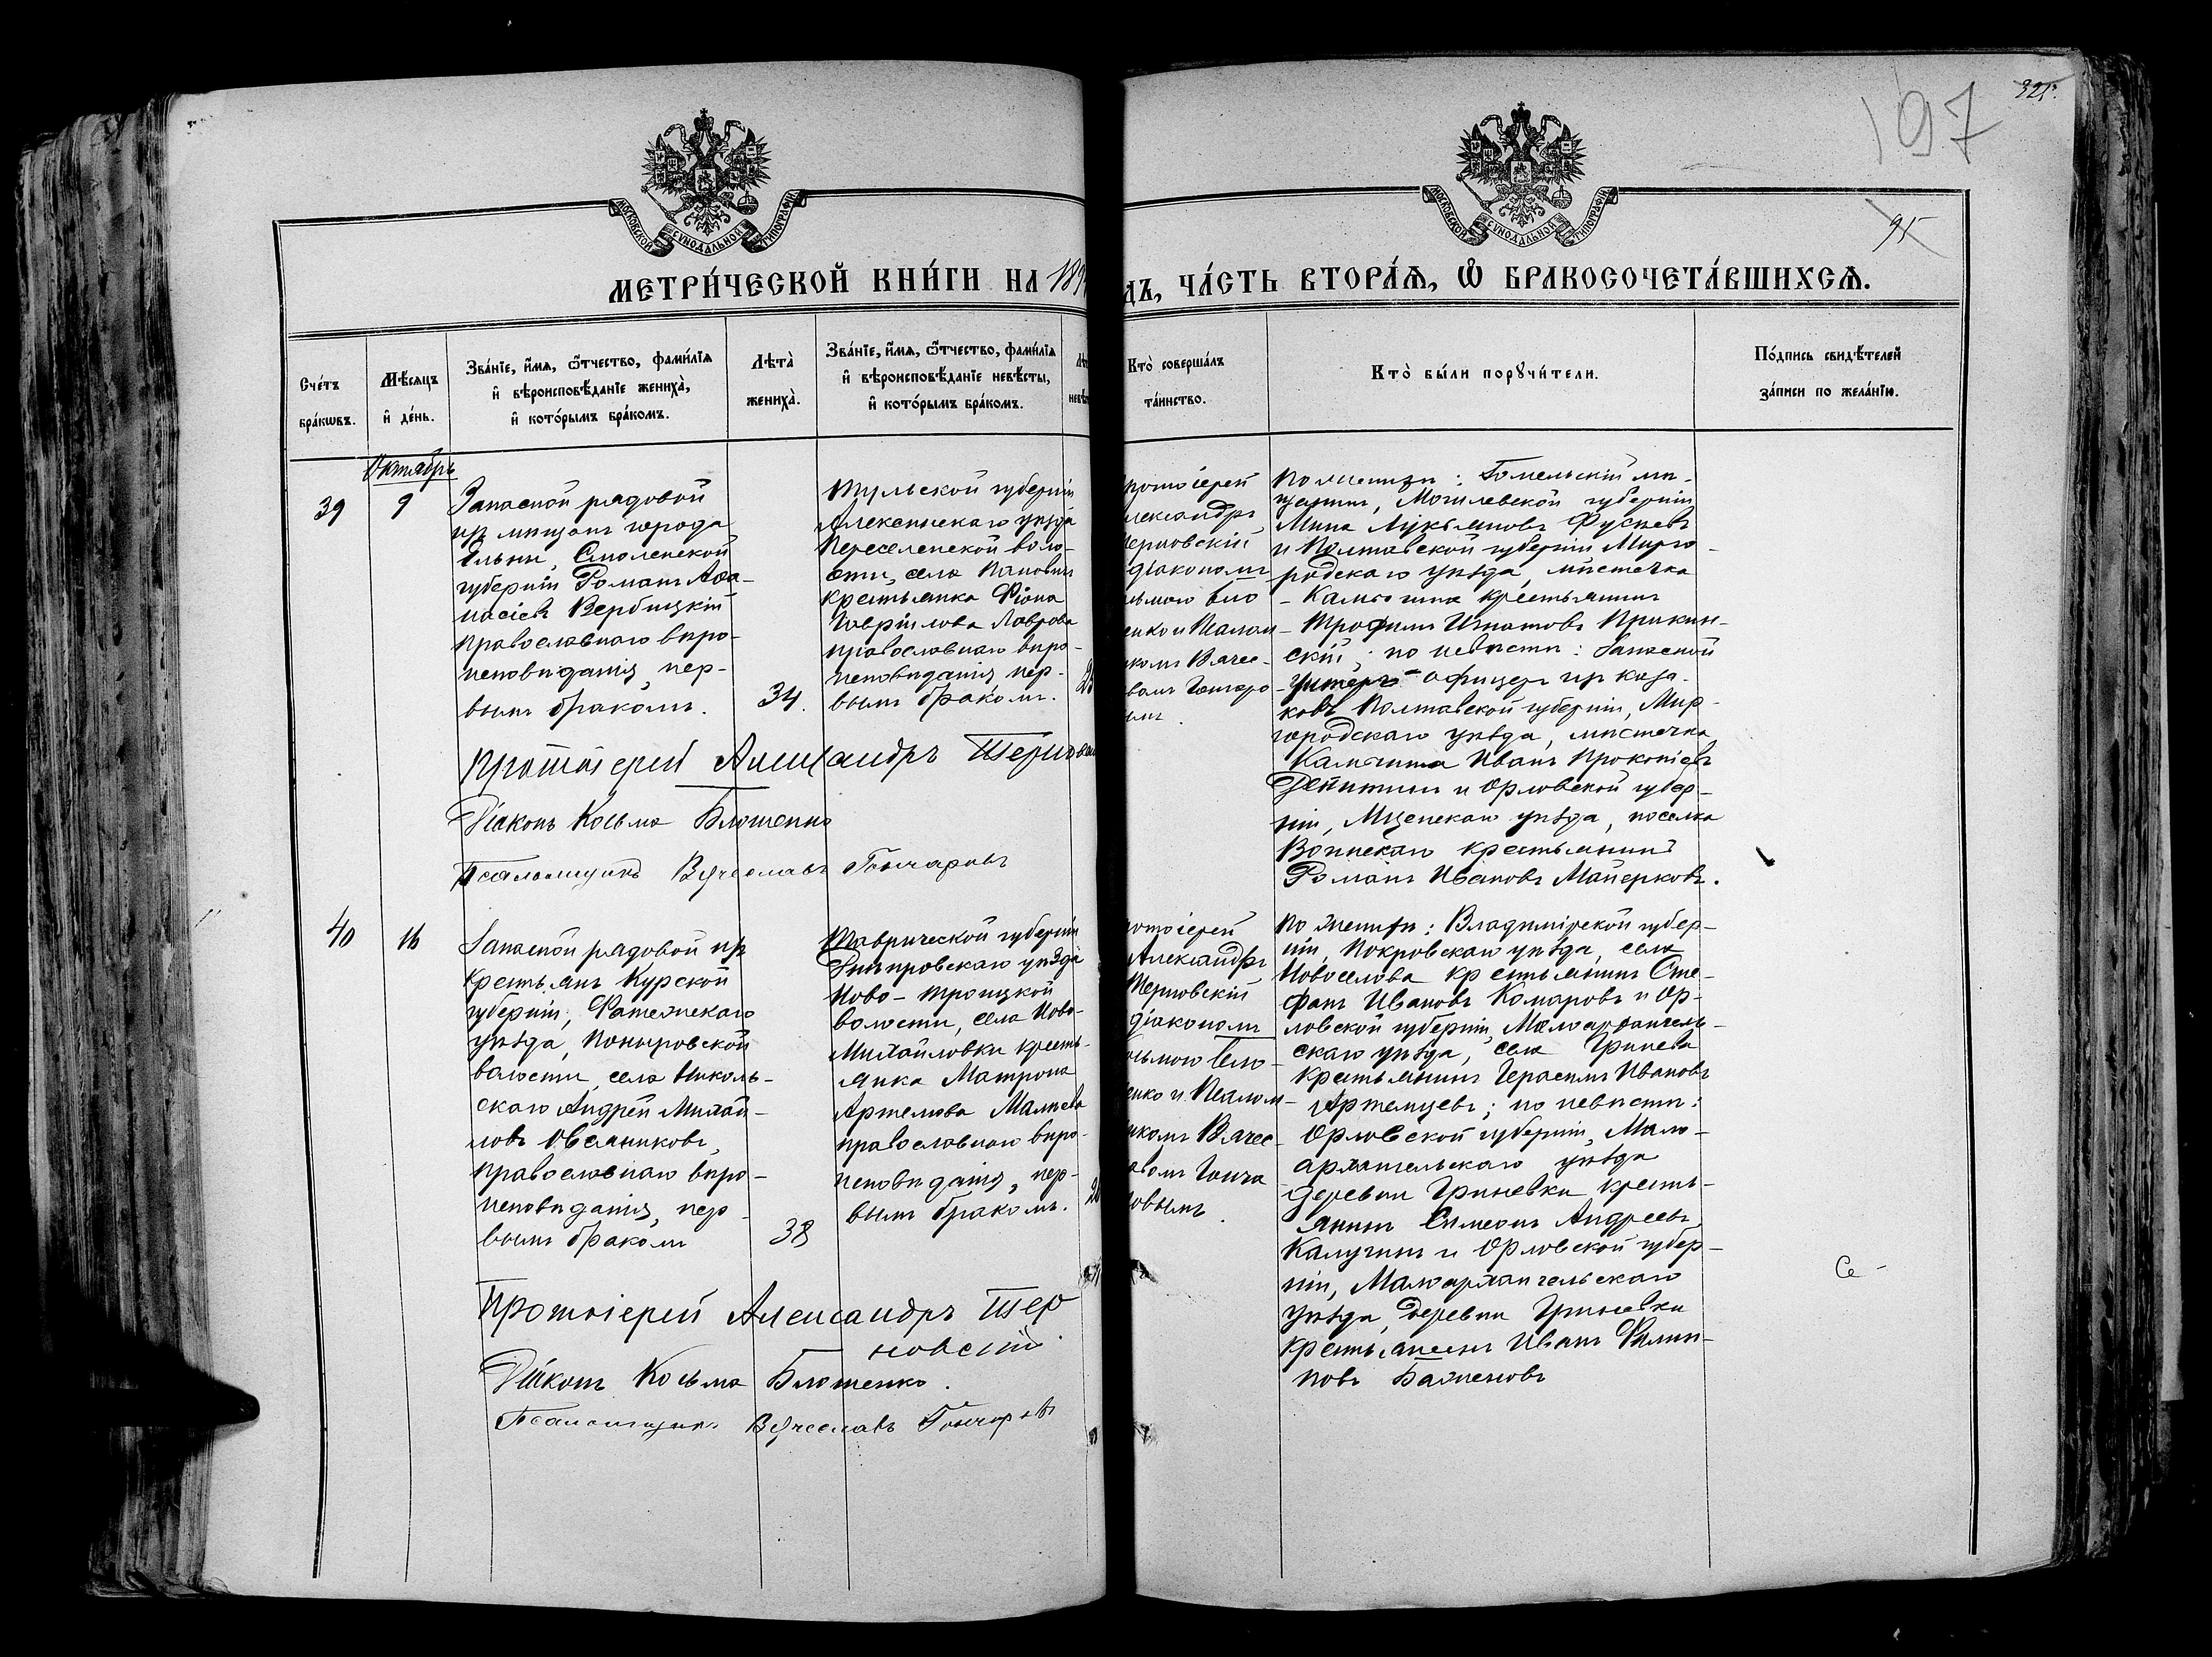 197
325.
95
МОСКОВСКОЙ СУНОДАЛЬНОЙ ТИПОГРАФІИ
МОСКОВСКОЙ СУНОДАЛЬНОЙ ТИПОГРАФІИ
МЕТРИ́ЧЕСКОЙ КНИ́ГИ НА 189
ДЪ, ЧА́СТЬ ВТОРА́Ѧ, Ѿ БРАКОСОЧЕТА́ВШИХСѦ.
Сче́тъ
бра́кѡвъ.
Мѣ́сяцъ
и҆ де́нь.
Зва́нїе, и҆́мя, ѻ҆́тчество, фами́лїя
и҆ вѣроисповѣ́данїе жениха̀,
и҆ кото́рымъ бра́комъ.
Лѣта̀
жениха̀.
Зва́нїе, и҆́мя, ѻ҆́тчество, фами́лїя
и҆ вѣроисповѣ́данїе невѣ́сты,
и҆ кото́рымъ бра́комъ.
Кто̀ соверша́лъ
та́инство.
Кто̀ бы́ли порꙋчи́тели.
По́дпись свидѣ́телей
за́писи по жела́нїю.
Октябрь
39
9
Запасной рядовой
изъ мѣщанъ города
Ельни, Смоленской
губерніи Романъ Аѳа-
насіевъ Вербицкій
православнаго вѣро-
исповѣданія, пер-
вымъ бракомъ.
34.
Тульской губерніи
Алексинскаго уѣзда
Переселенской воло-
сти, села
крестьянка Ѳіона
Гаврілова Лаврова
православнаго вѣро-
исповѣданія, пер-
вымъ бракомъ.
ротоіерей
лександръ
ерновскій
діакономъ
ьмою Бло
енко и Псалом-
комъ Вячес-
вомъ Гончаро-
ымъ.
По женихѣ: Гомельскій мѣ-
щанинъ, Могилевской губерніи
Мина Лукьяновъ
и Полтавской губерніи Мирго-
родскаго уѣзда, мѣстечка
Камышна крестьянинъ
Трофимъ Игнатовъ
скій; по невѣстѣ: Запасной
Унтеръ-офицеръ изъ каза-
ковъ Полтавской губерніи, Мир-
городскаго уѣзда, мѣстечка
Камышна Иванъ Прокопіевъ
и Орловской губер-
ніи, Мценскаго уѣзда, поселка
Воинскаго крестьянинъ
Романъ Ивановъ Майерковъ.
Протоіерей Александръ Терновскій
Діаконъ Косьма Блошенко
Псаломщикъ Вячеславъ Гончаровъ
40
16
Запасной рядовой изъ
крестьянъ Курской
губерніи, Фатежскаго
уѣзда, Поныровской
волости, села Николь-
скаго Андрей Михай-
ловъ Овсянниковъ,
православнаго вѣро-
исповѣданія, пер-
вымъ бракомъ
38
Таврической губерніи
Днѣпровскаго уѣзда
Ново-Троицкой
волости, села Ново-
Михайловки кресть-
янка Матрона
Артемова Малиева
православнаго вѣро-
исповѣданія, пер-
вымъ бракомъ.
ротоіерей
Александръ
Терновскій
діакономъ
сьмою Бло-
енко и Псалом-
комъ Вячес-
авомъ Гонча
ровымъ.
По женихѣ: Владимірской губер-
ніи, Покровскаго уѣзда, села
Новоселова крестьянинъ Сте-
фанъ Ивановъ Комаровъ и Ор-
ловской губерніи, Малоархангель-
скаго уѣзда, села Гринева
крестьянинъ Герасимъ Ивановъ
Артемцевъ; по невѣстѣ:
Орловской губерніи, Мало-
архангельскаго уѣзда
деревни Гриневки кресть-
янинъ Симеонъ Андреевъ
Калугинъ и Орловской губер-
ніи, Малоархангельскаго
уѣзда, деревни Гриневки
крестьянинъ Иванъ Филип-
повъ Баженовъ
Се-
Протоіерей Александръ Тер
новскій
Діаконъ Косьма Блошенко.
Псаломщикъ Вячеславъ Гончаровъ